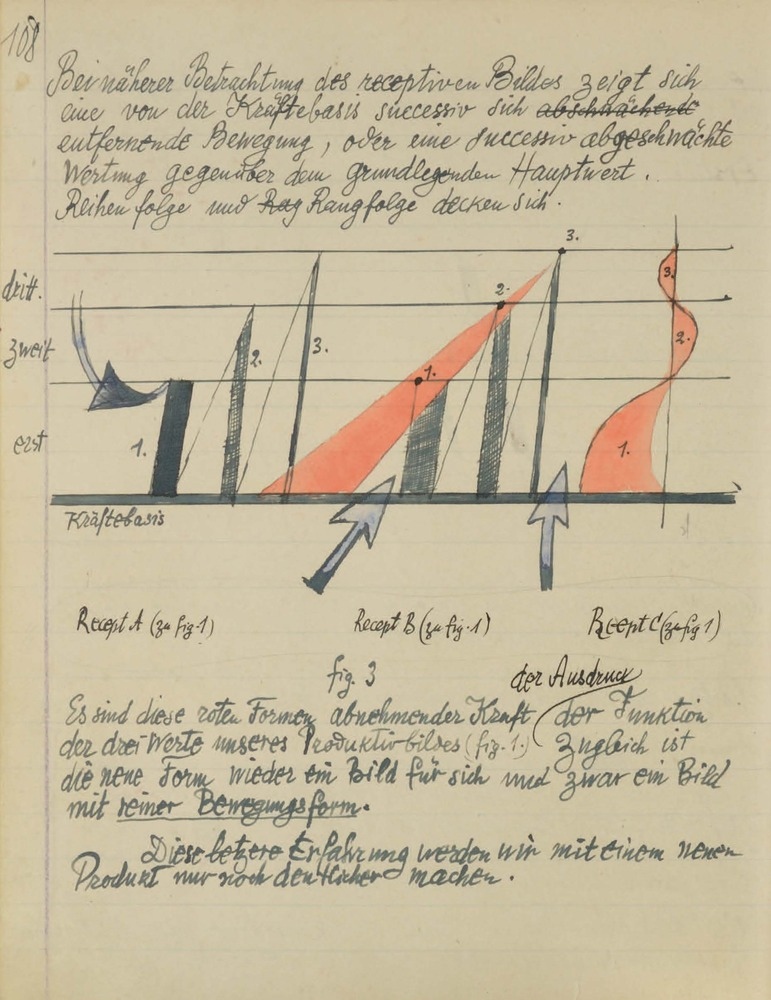 108
Bei näherer Betrachtung des receptiven Bildes zeigt sich
eine von der Kräftebasis successiv sich abschwächende
entfernende Bewegung, oder eine successiv abgeschwächte
Wertung gegenüber dem grundlegenden Hauptwert.
Reihenfolge und Rag Rangfolge decken sich.
3.
dritt.
2.
3.
zweit
2.
3.
2.
1.
erst
1.
1.
Kräftebasis
Recept A (zu fig. 1)
Recept B (zu fig. 1)
Recept C (zu fig 1)
fig. 3
der Ausdruck
Es sind diese roten Formen abnehmender Kraft der Funktion
der drei Werte unseres Produktivbildes (fig. 1.) Zugleich ist
die neue Form wieder ein Bild für sich und zwar ein Bild
mit reiner Bewegungsform.
Diese letzere Erfahrung werden wir mit einem neuen
Produkt nur noch deutlicher machen.